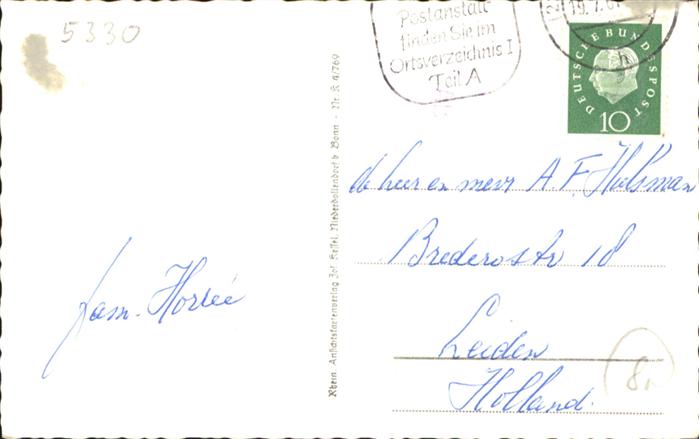 5330
Postanstalt
finden Sie im
Ortsverzeichnis I
Teil A
19.7.61
h
DEUTSCHE BUNDESPOST
10
Rhein. Ansichtskartenverlag Jos. Kessel, Niederdollendorf b. Bonn - Nr. K 4/760
de heer en mevr A.F. Holsman
Brederostr 18
Leiden
Holland.
fam. Horrée